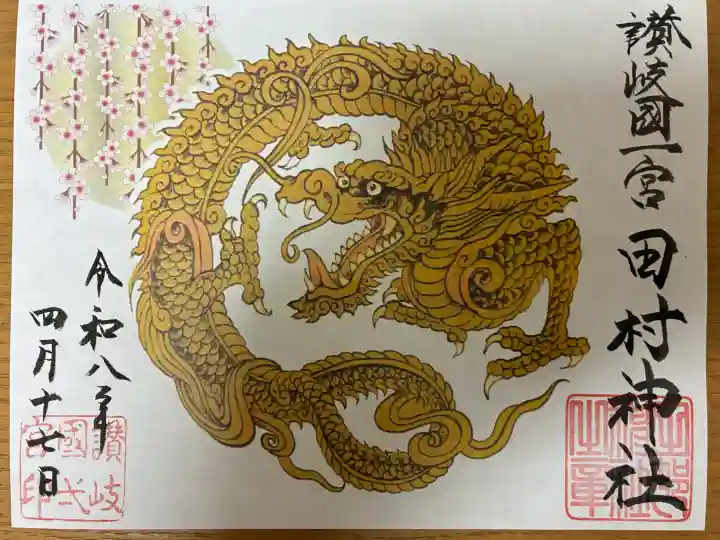 讃岐國一宮田村神社
令和八年
四月十七日
讃岐
國弌
宮印